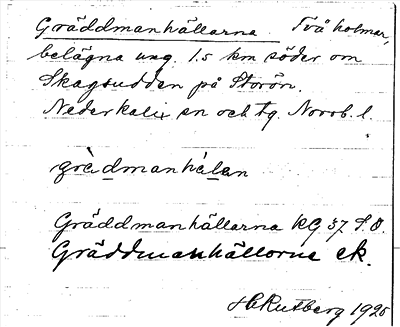 Gräddmanhällarna Två holmar,
belägna ung. 1.5 km söder om
Skagsudden på Storön.
Nederkalix sn och tg. Norrb. l.
grädmanhälan
Gräddmanhällarna KG 37 S.O.
Gräddmanhällorne ek.
H Rutberg 1925